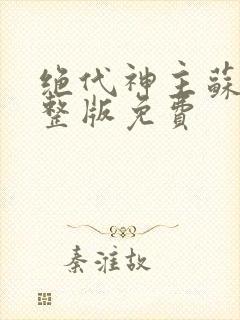 绝代神主蘇
整版免費
秦淮故